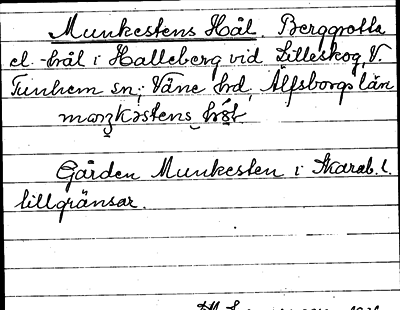 Munkestens Hål Berggrotta
el. -hål i Halleberg vid Lilleskog, V.
Tunhem sn; Väne hd, Älfsborgs län
Gården Munkesten i Skarab. l.
tillgränsar.